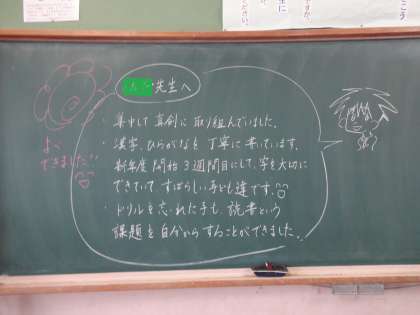 先生へ
・集中して真剣に取り組んでいました。
・漢字、ひらがなを丁寧に書いています。
新年度開始3週間目にして、字を大切に
できていて、すばらしい子ども達です。
・ドリルを忘れた子も、読書という
課題を自分からすることができました。
よく
できました!!